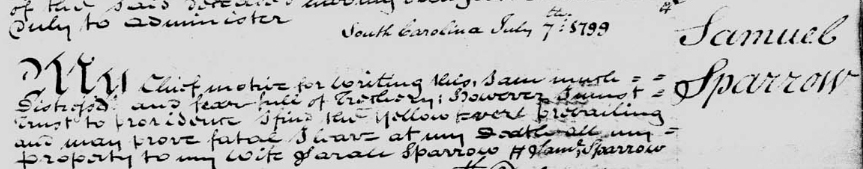 of the said deceased having
Duly to administer
South Carolina July 7th: 1799
Samuel
Sparrow
My Chief motive for writing this, I am much = =
Distress'd and fear full of Trechery; However I must =
Trust to providence I find the Yellow Fever prevailing
and may prove fatal I leave at my Death all my =
property to my Wife Sarah Sparrow H Saml. Sparrow